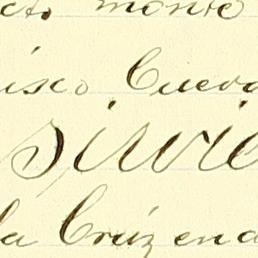 cto monte
isco Cueva
sirvie
la Crúz ena